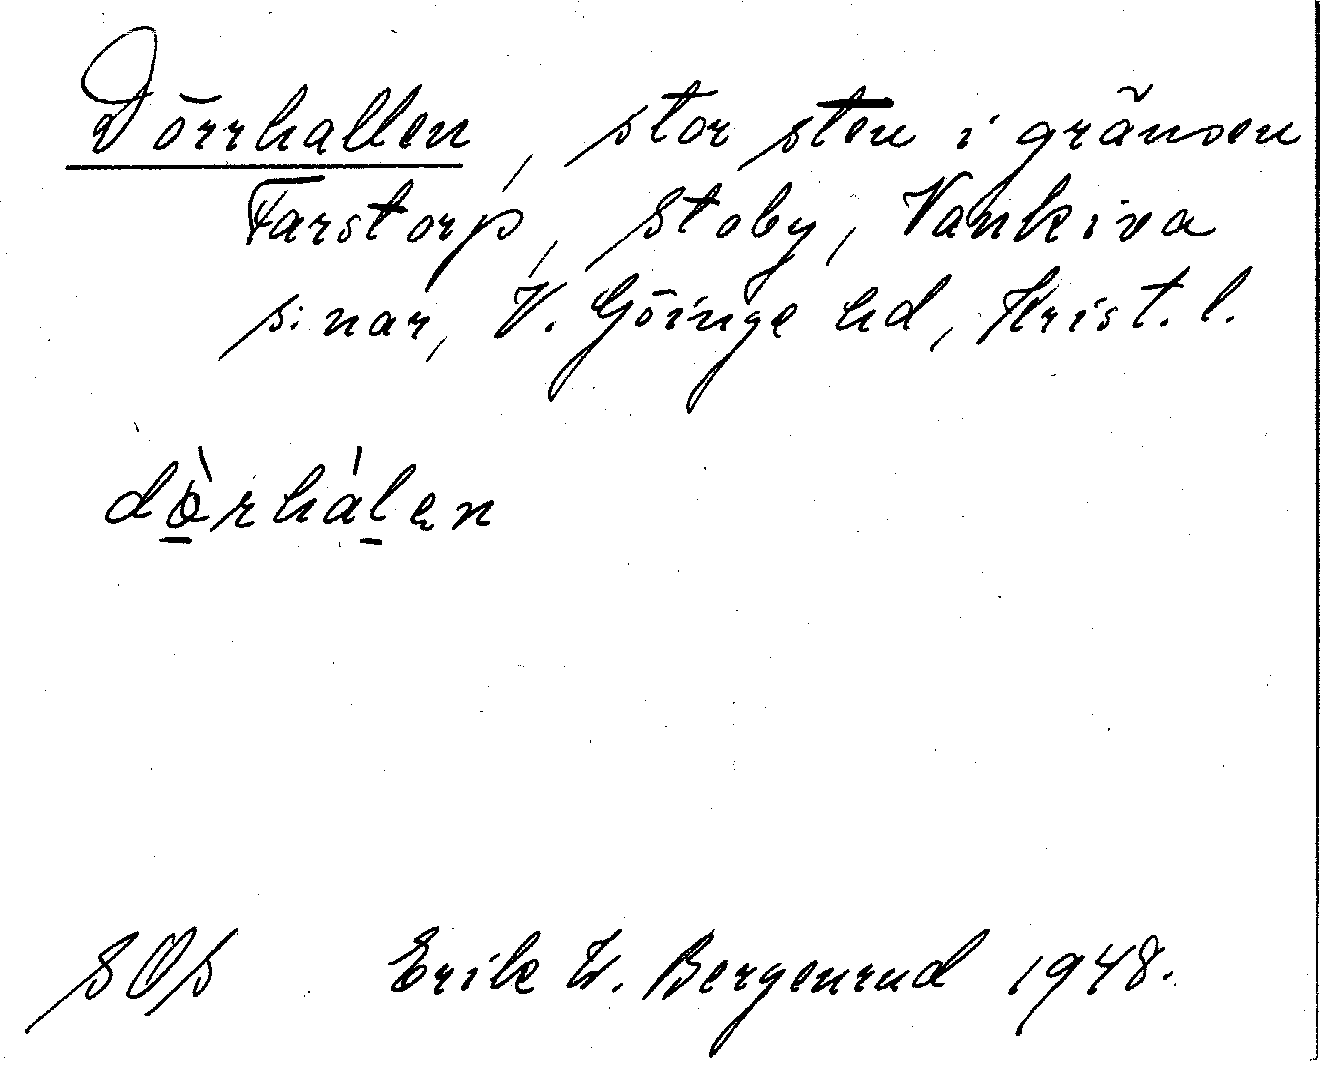 Dörrhallen, stor sten i gränsen
Farstorp, Stoby, Vankiva
s:nar, V. Göinge hd, Krist. l.
dò̱rhàḻen
SOS Erik W. Bergenrud 1948.